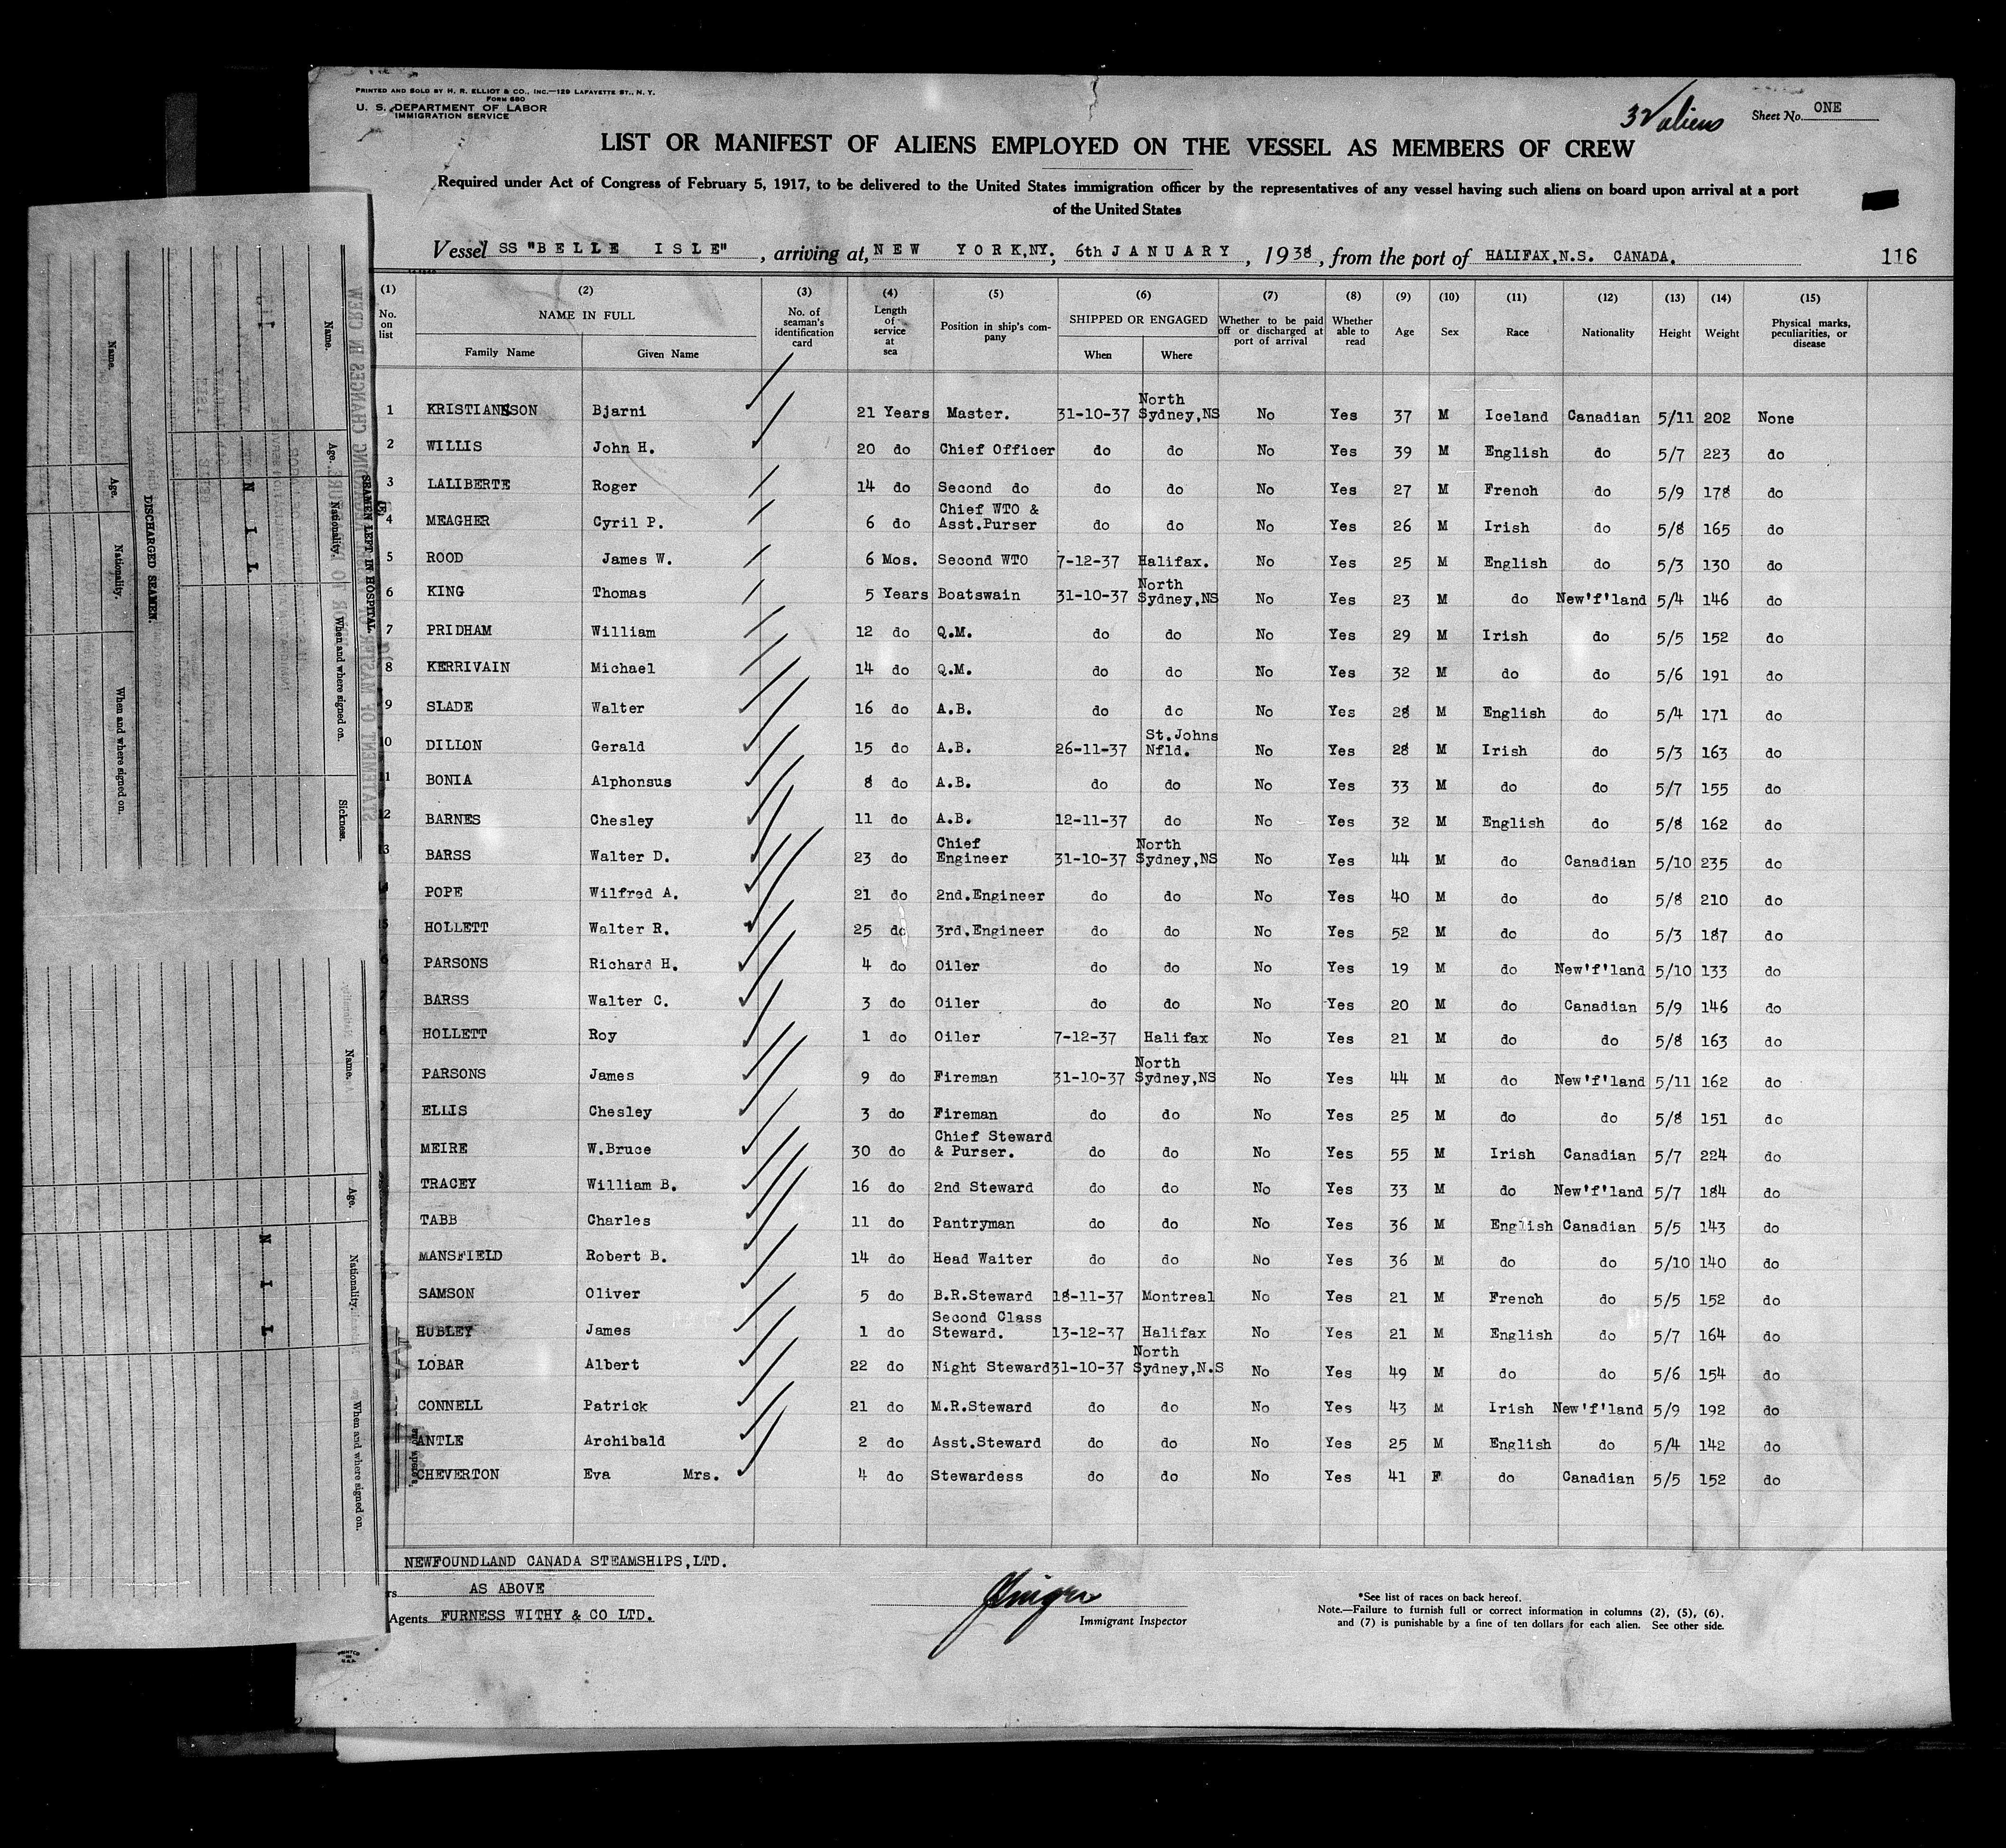 PRINTED AND SOLD BY H. R. ELLIOT & CO., INC.—129 LAFAYETTE ST., N. Y.
FORM 680
U. S. DEPARTMENT OF LABOR
IMMIGRATION SERVICE
32 aliens
Sheet No. ONE
LIST OR MANIFEST OF ALIENS EMPLOYED ON THE VESSEL AS MEMBERS OF CREW
Required under Act of Congress of February 5, 1917, to be delivered to the United States immigration officer by the representatives of any vessel having such aliens on board upon arrival at a port
of the United States
Vessel SS "BELLE ISLE", arriving at, NEW YORK,NY; 6th JANUARY, 1938, from the port of HALIFAX,N.S. CANADA. 116
(1) (2) (3) (4) (5) (6) (7) (8) (9) (10) (11) (12) (13) (14) (15)
No. on list NAME IN FULL Family Name Given Name No. of seaman's identification card Length of service at sea Position in ship's company SHIPPED OR ENGAGED When Where Whether to be paid off or discharged at port of arrival Whether able to read Age Sex Race Nationality Height Weight Physical marks, peculiarities, or disease
1 KRISTIANSSON Bjarni 21 Years Master. 31-10-37 North Sydney,NS No Yes 37 M Iceland Canadian 5/11 202 None
2 WILLIS John H. 20 do Chief Officer do do No Yes 39 M English do 5/7 223 do
3 LALIBERTE Roger 14 do Second do do do No Yes 27 M French do 5/9 178 do
4 MEAGHER Cyril P. 6 do Chief WTO & Asst.Purser do do No Yes 26 M Irish do 5/8 165 do
5 ROOD James W. 6 Mos. Second WTO 7-12-37 Halifax. No Yes 25 M English do 5/3 130 do
6 KING Thomas 5 Years Boatswain 31-10-37 North Sydney,NS No Yes 23 M do New'f'land 5/4 146 do
7 PRIDHAM William 12 do Q.M. do do No Yes 29 M Irish do 5/5 152 do
8 KERRIVAIN Michael 14 do Q.M. do do No Yes 32 M do do 5/6 191 do
9 SLADE Walter 16 do A.B. do do No Yes 28 M English do 5/4 171 do
10 DILLON Gerald 15 do A.B. 26-11-37 St.Johns Nfld. No Yes 28 M Irish do 5/3 163 do
11 BONIA Alphonsus 8 do A.B. do do No Yes 33 M do do 5/7 155 do
12 BARNES Chesley 11 do A.B. 12-11-37 do No Yes 32 M English do 5/8 162 do
3 BARSS Walter D. 23 do Chief Engineer 31-10-37 North Sydney,NS No Yes 44 M do Canadian 5/10 235 do
4 POPE Wilfred A. 21 do 2nd.Engineer do do No Yes 40 M do do 5/8 210 do
5 HOLLETT Walter R. 25 do 3rd.Engineer do do No Yes 52 M do do 5/3 187 do
6 PARSONS Richard H. 4 do Oiler do do No Yes 19 M do New'f'land 5/10 133 do
7 BARSS Walter C. 3 do Oiler do do No Yes 20 M do Canadian 5/9 146 do
8 HOLLETT Roy 1 do Oiler 7-12-37 Halifax No Yes 21 M do do 5/8 163 do
PARSONS James 9 do Fireman 31-10-37 North Sydney,NS No Yes 44 M do New'f'land 5/11 162 do
ELLIS Chesley 3 do Fireman do do No Yes 25 M do do 5/8 151 do
MEIRE W.Bruce 30 do Chief Steward & Purser. do do No Yes 55 M Irish Canadian 5/7 224 do
TRACEY William B. 16 do 2nd Steward do do No Yes 33 M do New'f'land 5/7 184 do
TABB Charles 11 do Pantryman do do No Yes 36 M English Canadian 5/5 143 do
MANSFIELD Robert B. 14 do Head Waiter do do No Yes 36 M do do 5/10 140 do
SAMSON Oliver 5 do B.R.Steward 18-11-37 Montreal No Yes 21 M French do 5/5 152 do
HUBLEY James 1 do Second Class Steward. 13-12-37 Halifax No Yes 21 M English do 5/7 164 do
LOBAR Albert 22 do Night Steward 31-10-37 North Sydney,N.S No Yes 49 M do do 5/6 154 do
CONNELL Patrick 21 do M.R.Steward do do No Yes 43 M Irish New'f'land 5/9 192 do
ANTLE Archibald 2 do Asst.Steward do do No Yes 25 M English do 5/4 142 do
CHEVERTON Eva Mrs. 4 do Stewardess do do No Yes 41 F do Canadian 5/5 152 do
NEWFOUNDLAND CANADA STEAMSHIPS,LTD.
rs AS ABOVE
Agents FURNESS WITHY & CO LTD.
Immigrant Inspector
*See list of races on back hereof.
Note.—Failure to furnish full or correct information in columns (2), (5), (6),
and (7) is punishable by a fine of ten dollars for each alien. See other side.
SEAMEN LEFT IN HOSPITAL
Name. Age. Nationality. When and where signed on. Sickness.
N I L
DISCHARGED SEAMEN.
Name. Age. Nationality. When and where signed on.
STATEMENT OF MASTER
CHANGES IN CREW
Name. Age. Nationality. When and where signed on.
N I L